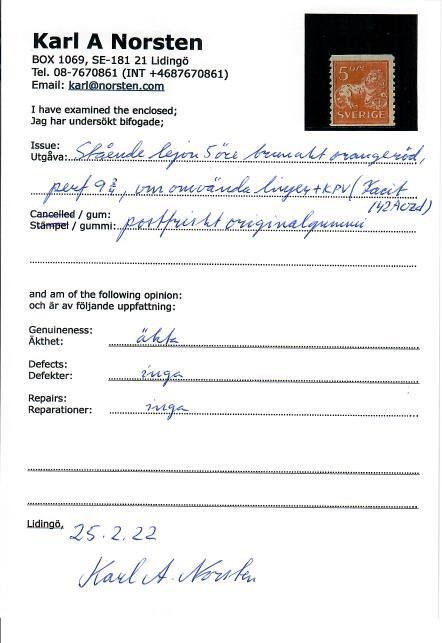 Karl A Norsten
BOX 1069, SE-181 21 Lidingö
Tel. 08-7670861 (INT +4687670861)
Email: karl@norsten.com
5 ÖRE
SVERIGE
I have examined the enclosed;
Jag har undersökt bifogade;
Issue:
Utgåva: Stående lejon 5 öre brunakt orangeröd,
perf 9¾, vm omvända linjer + KPV (Facit
142Acxz)
Cancelled / gum:
Stämpel / gummi: postfriskt originalgummi
and am of the following opinion:
och är av följande uppfattning:
Genuineness:
Äkthet: äkta
Defects:
Defekter: inga
Repairs:
Reparationer: inga
Lidingö, 25.2.22
Karl A. Norsten